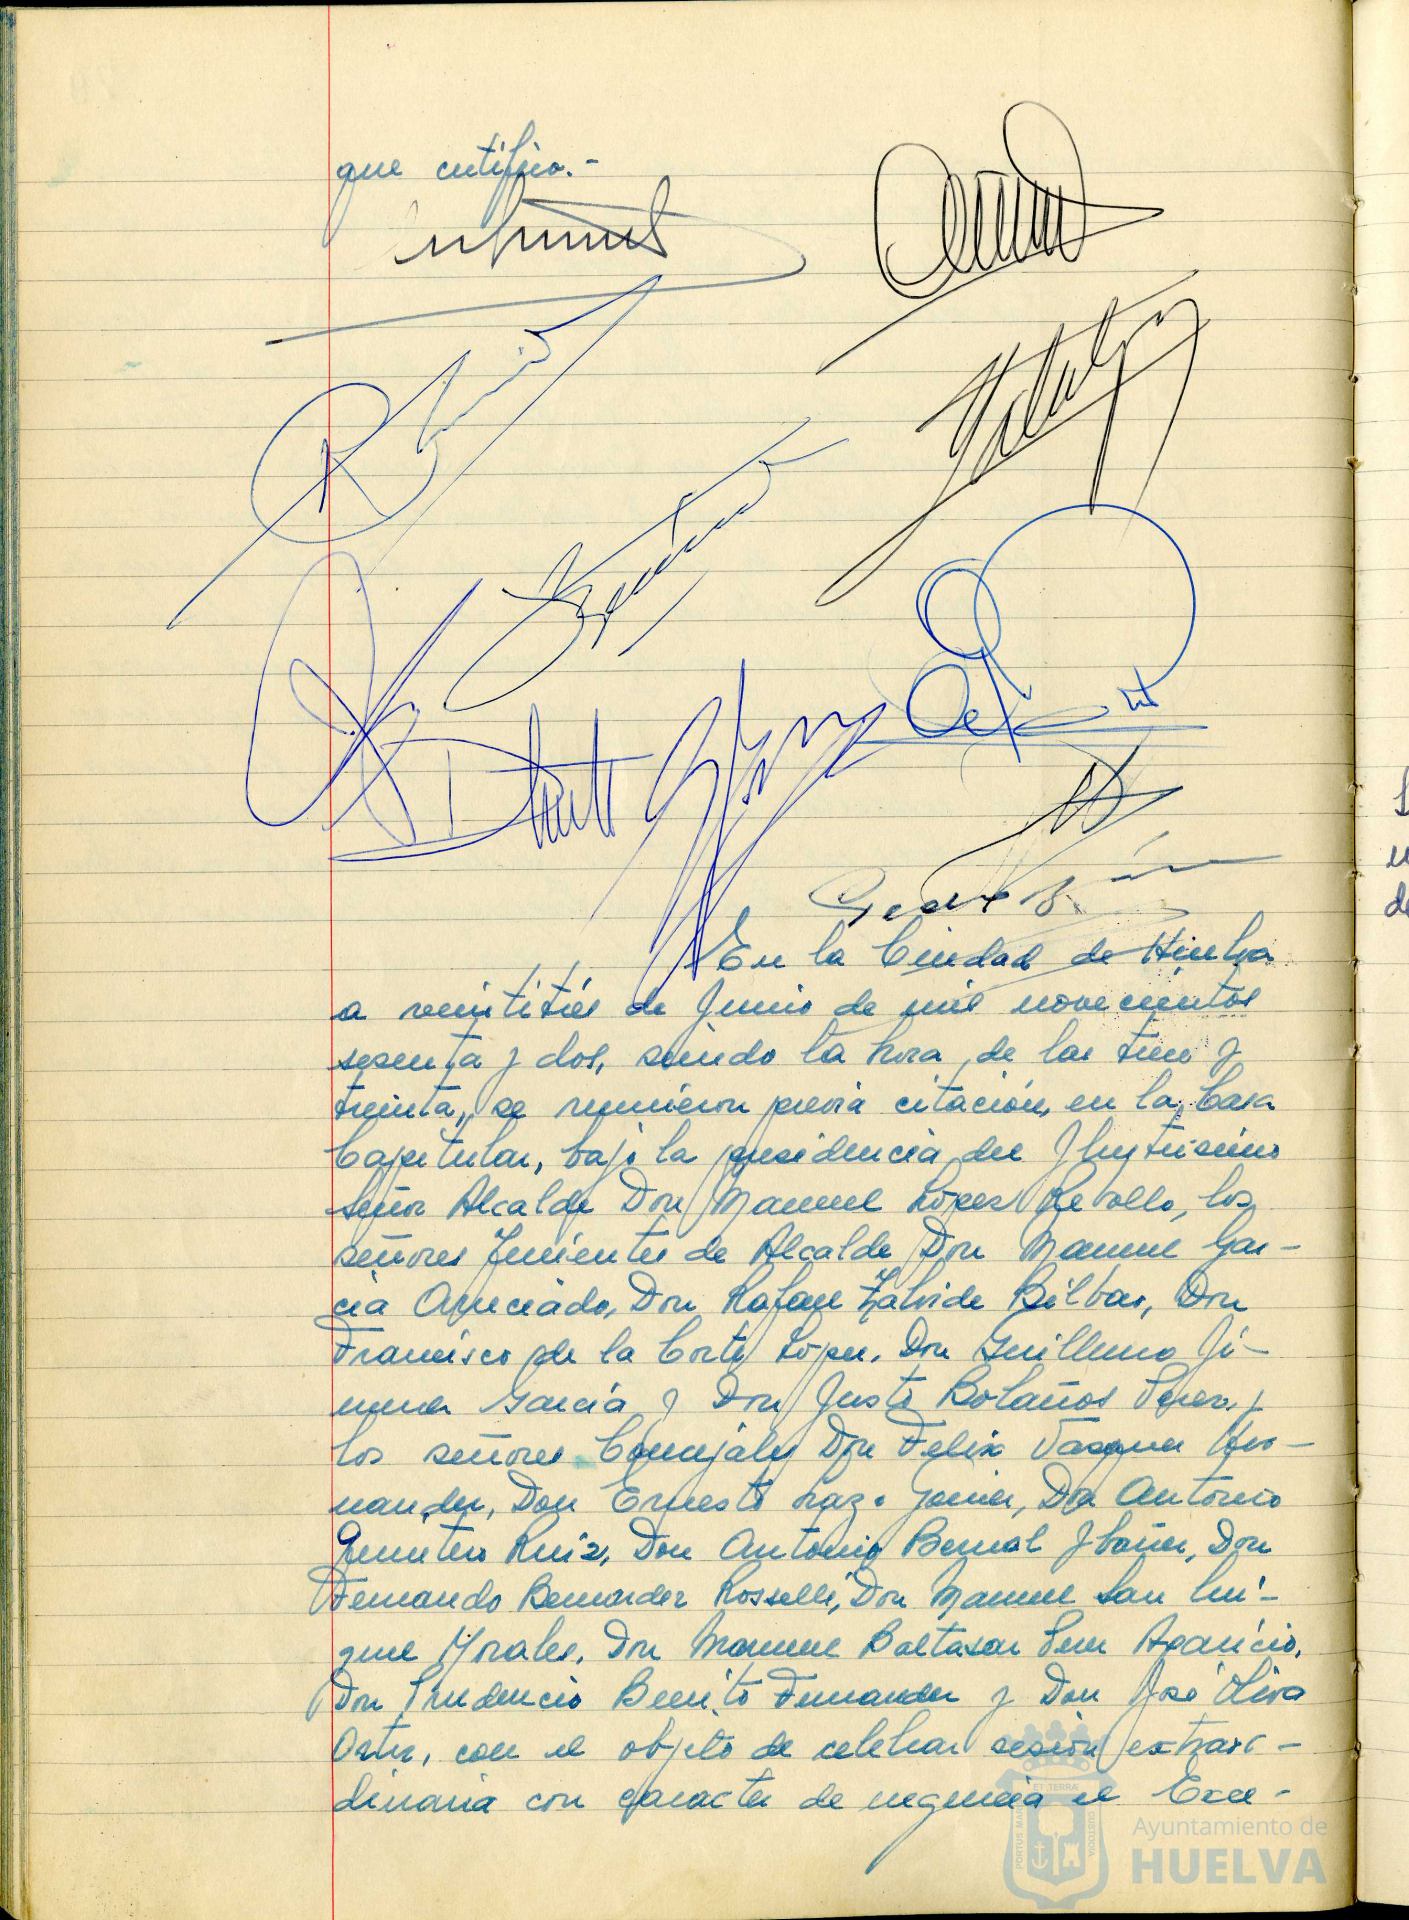 que certifico.-
En la Ciudad de Huelva
a veintitrés de Junio de mil novecientos
sesenta y dos, siendo la hora de las trece y
treinta, se reunieron previa citación, en la Casa
Capitular, bajo la presidencia del Ilustrísimo
Señor Alcalde Don Manuel López Rebollo, los
señores Tenientes de Alcalde Don Manuel Gar-
cía Apreciado, Don Rafael Zalvide Bilbao, Don
Francisco de la Corte López, Don Guillermo Ji-
menez García y Don Justo Bolaños Perez, y
los señores Concejales Don Felix Vazquez Her-
nandez, Don Ernesto Lazo Javier, Don Antonio
Ruiz, Don Antonio Bernal Ibañez, Don
Fernando Bernardez Rosselli, Don Manuel
Morales, Don Manuel Baltasar Aparicio,
Don Prudencio Benito Fernandez y Don José Oliva
con el objeto de celebrar sesión extraor-
dinaria con caracter de urgencia el Exce-
PORTUS MARIS ET TERRÆ CUSTODIA
Ayuntamiento de
HUELVA